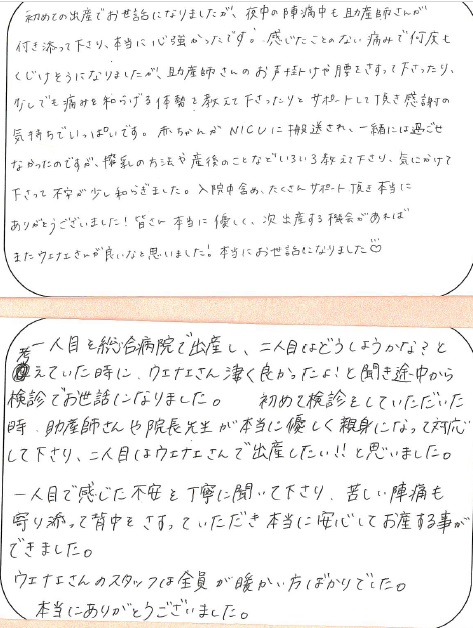 初めての出産でお世話になりましたが、夜中の陣痛中も助産師さんが
付き添って下さり、本当に心強かったです。感じたことのない痛みで何度も
くじけそうになりましたが、助産師さんのお声掛けや腰をさすって下さったり、
少しでも痛みを和らげる体勢を教えて下さったりとサポートして頂き感謝の
気持ちでいっぱいです。赤ちゃんがNICUに搬送され、一緒には過ごせ
なかったのですが、搾乳の方法や産後のことなどいろいろ教えて下さり、気にかけて
下さって不安が少し和らぎました。入院中含め、たくさんサポート頂き本当に
ありがとうございました!皆さん本当に優しく、次出産する機会があれば
またウエナエさんが良いなと思いました!本当にお世話になりました♡
一人目を総合病院で出産し、二人目はどうしようかな?と
考えていた時に、ウエナエさん凄く良かったよ!と聞き途中から
検診でお世話になりました。 初めて検診をしていただいた
時、助産師さんや院長先生が本当に優しく親身になって対応
して下さり、二人目はウエナエさんで出産したい!!と思いました。
一人目で感じた不安を丁寧に聞いて下さり、苦しい陣痛も
寄り添って背中をさすっていただき本当に安心してお産する事が
できました。
ウエナエさんのスタッフは全員が暖かい方ばかりでした。
本当にありがとうございました。